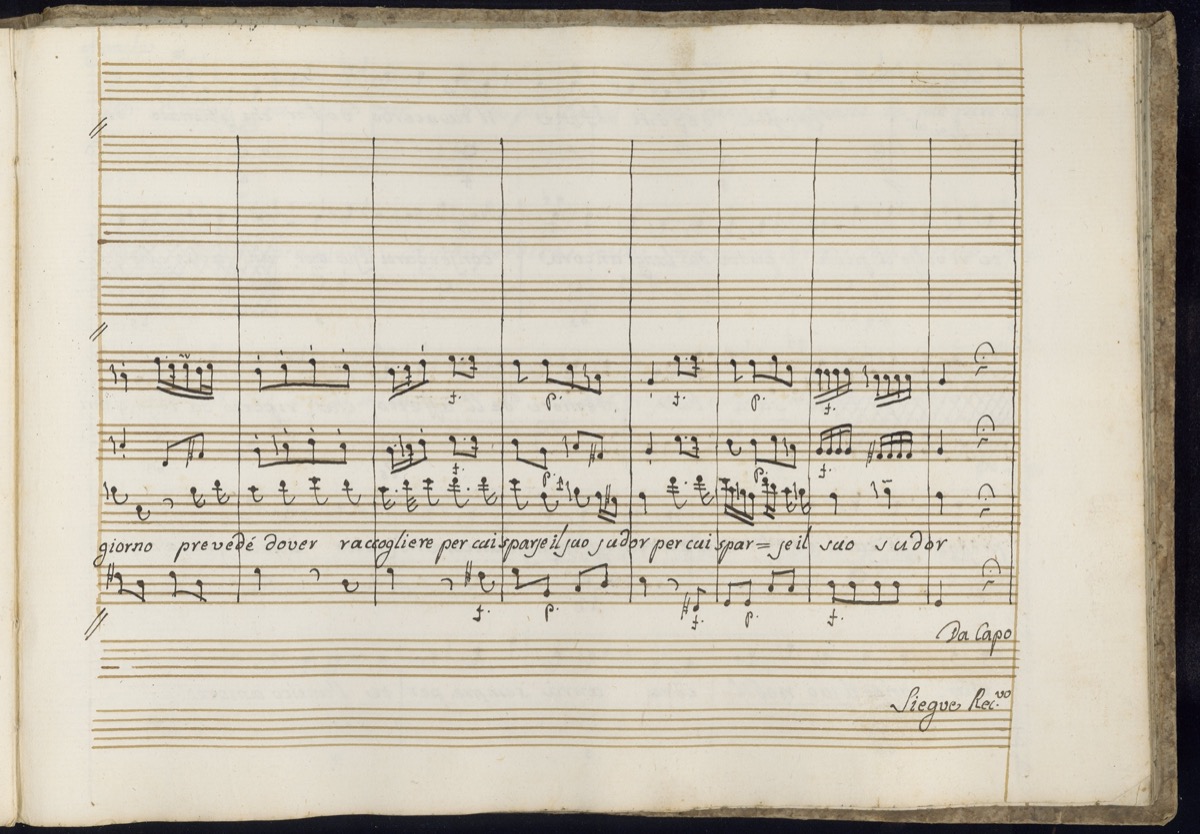 f. p. f. p. f.
f. p. f.
giorno prevedé dover raccogliere per cui sparse il suo sudor per cui spar= se il suo sudor
f. p. f. p. f.
Da Capo
Siegue Rec.vo